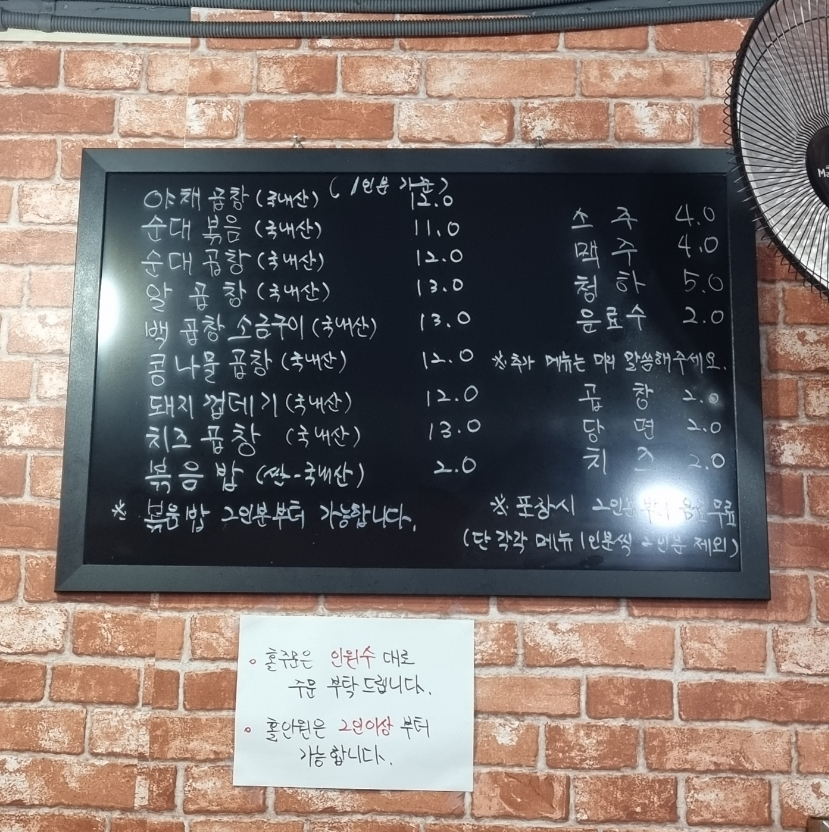 (1인분 가준)
야채 곱창 (국내산) 12.0
순대 볶음 (국내산) 11.0
순대 곱창 (국내산) 12.0
알 곱창 (국내산) 13.0
백 곱창 소금구이 (국내산) 13.0
콩나물 곱창 (국내산) 12.0
돼지 껍데기 (국내산) 12.0
치즈 곱창 (국내산) 13.0
볶음밥 (쌀-국내산) 2.0
※ 볶음밥 2인분부터 가능합니다.
소주 4.0
맥주 4.0
청하 5.0
음료수 2.0
※추가 메뉴는 미리 말씀해주세요.
곱창 2.0
당면 2.0
치즈 2.0
※ 포장시 2인분부터 음료무료
(단 각각 메뉴 1인분씩 2인분 제외)
홀주문은 인원수 대로
주문 부탁드립니다.
홀인원은 2인이상 부터
가능합니다.